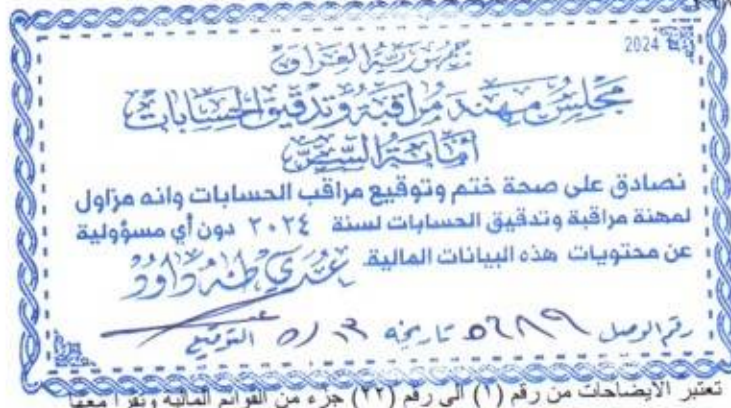 2024
جمهورية العراق
مجلس مهنة مراقبة وتدقيق الحسابات
أمانة السر
نصادق على صحة ختم وتوقيع مراقب الحسابات وانه مزاول
لمهنة مراقبة وتدقيق الحسابات لسنة ٢٠٢٤ دون أي مسؤولية
عن محتويات هذه البيانات المالية عدي طه داود
رقم الوصل تاريخه ٥/١٣ التوقيع
تعتبر الايضاحات من رقم (١) الى رقم (٢٢) جزء من القوائم المالية وتقرأ معها